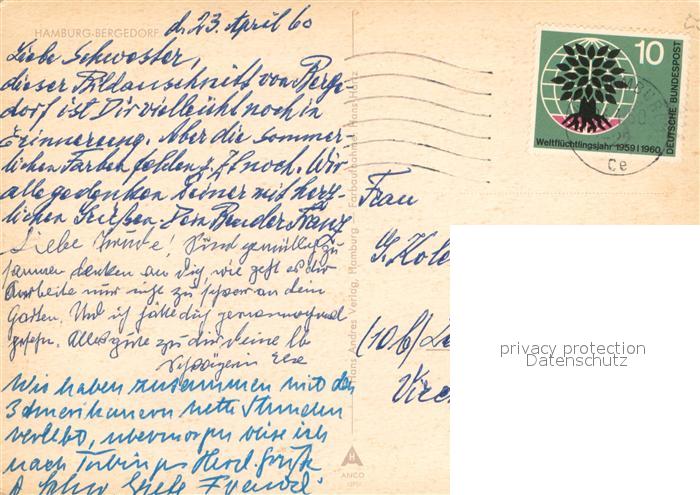 HAMBURG-BERGEDORF
d. 23. April 60
Liebe Schwester,
dieser Bildausschnitt von Berge-
dorf ist Dir vielleicht noch in
Erinnerung. Aber die sommer-
lichen Farben fehlen z. Zt noch. Wir
alle gedenken Deiner mit herz-
lichen Grüßen. Dein Bruder Franz
Liebe! gemütlich zu
sammen denken an Dich, wie geht es dir
Arbeite nur nicht zu schwer an dem
Garten. Und ich hätte dich gern nochmal
gesehen. Alles gute zu dir deine lb
Schwägerin Else
Wir haben zusammen mit den
3 Amerikanern nette Stunden
verlebt, übermorgen reise ich
nach Tübingen Herzl. Grüße
Hans Andres Verlag, Hamburg Farbaufnahme: Hans Hartz
H
ANCO
10
DEUTSCHE BUNDESPOST
Weltflüchtlingsjahr 1959 | 1960
Ce
Frau
G.
(10b)
privacy protection
Datenschutz